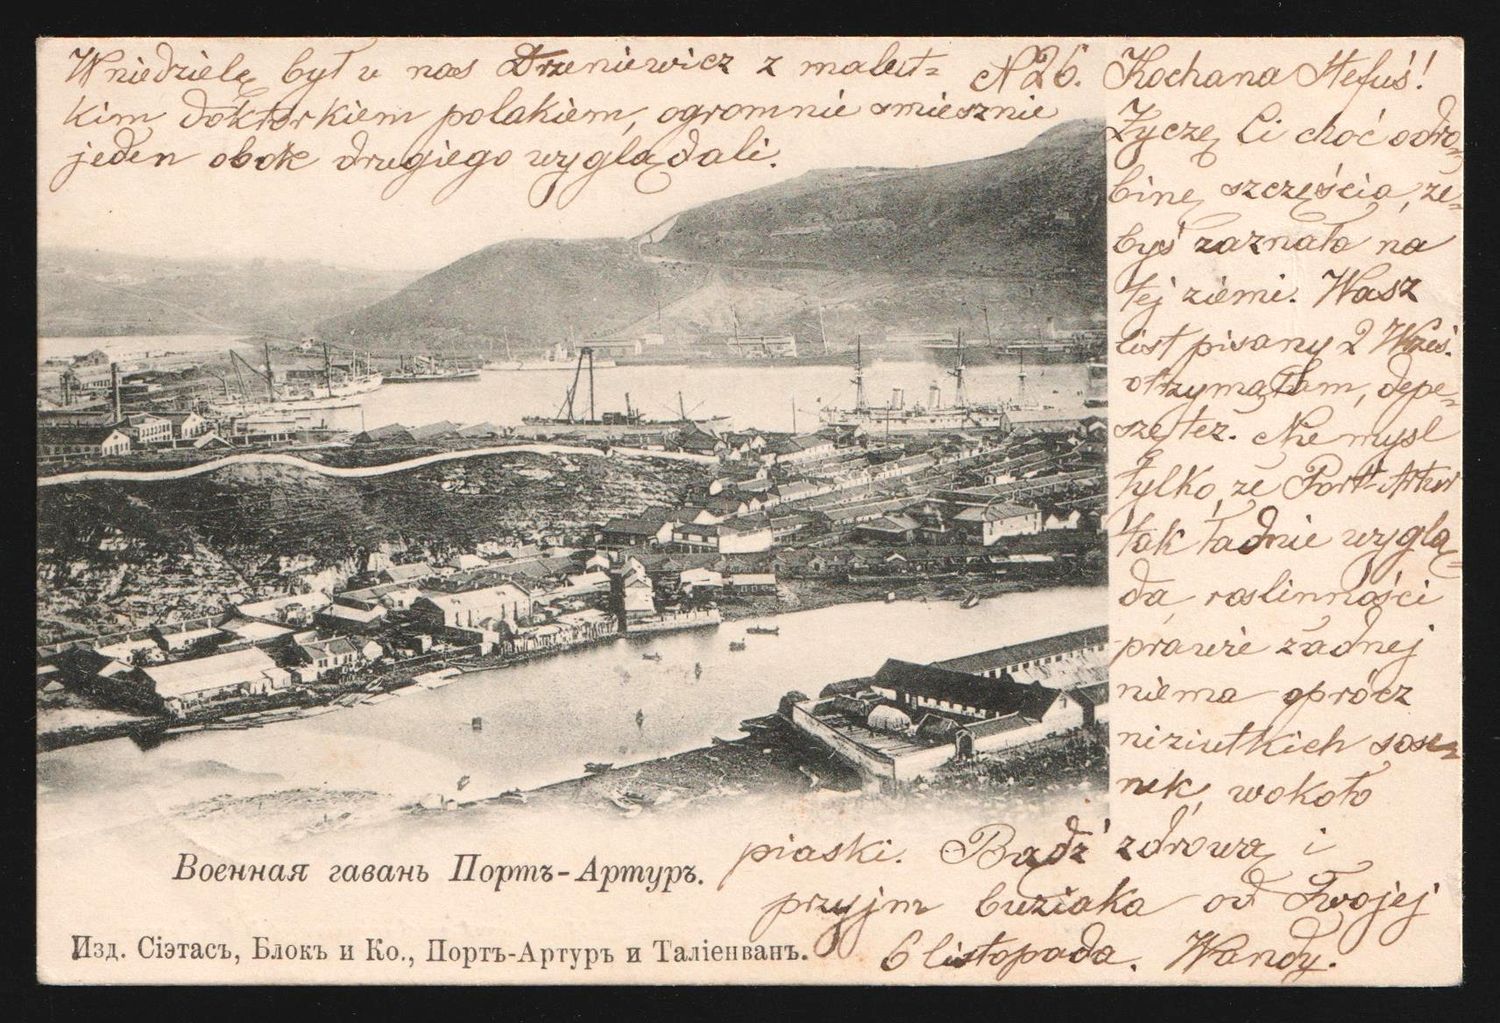 W niedzielę był u nas Drzeniewicz z maleut=
kim doktorkiem polakiem, ogromnie smiesznie
jeden obok drugiego wyglądali.
N 26. Kochana Stefuś!
Zyczę Ci choć odro=
binę szczęścia, że=
byś zaznała na
tej ziemi. Wasz
list pisany 2 Wrześ.
otrzymałam, depe=
szę też. Nie mysl
tylko, że Port-Artur
tak ładnie wyglą=
da, roslinności
prawie żadnej
niema oprócz
niziutkich sose=
nek, wokoło
piaski. Bądź zdrowa i
przyjm buziaka od Twojej
6 listopada. Wandy.
Военная гавань Портъ-Артуръ.
Изд. Сіэтасъ, Блокъ и Ко., Портъ-Артуръ и Таліенванъ.